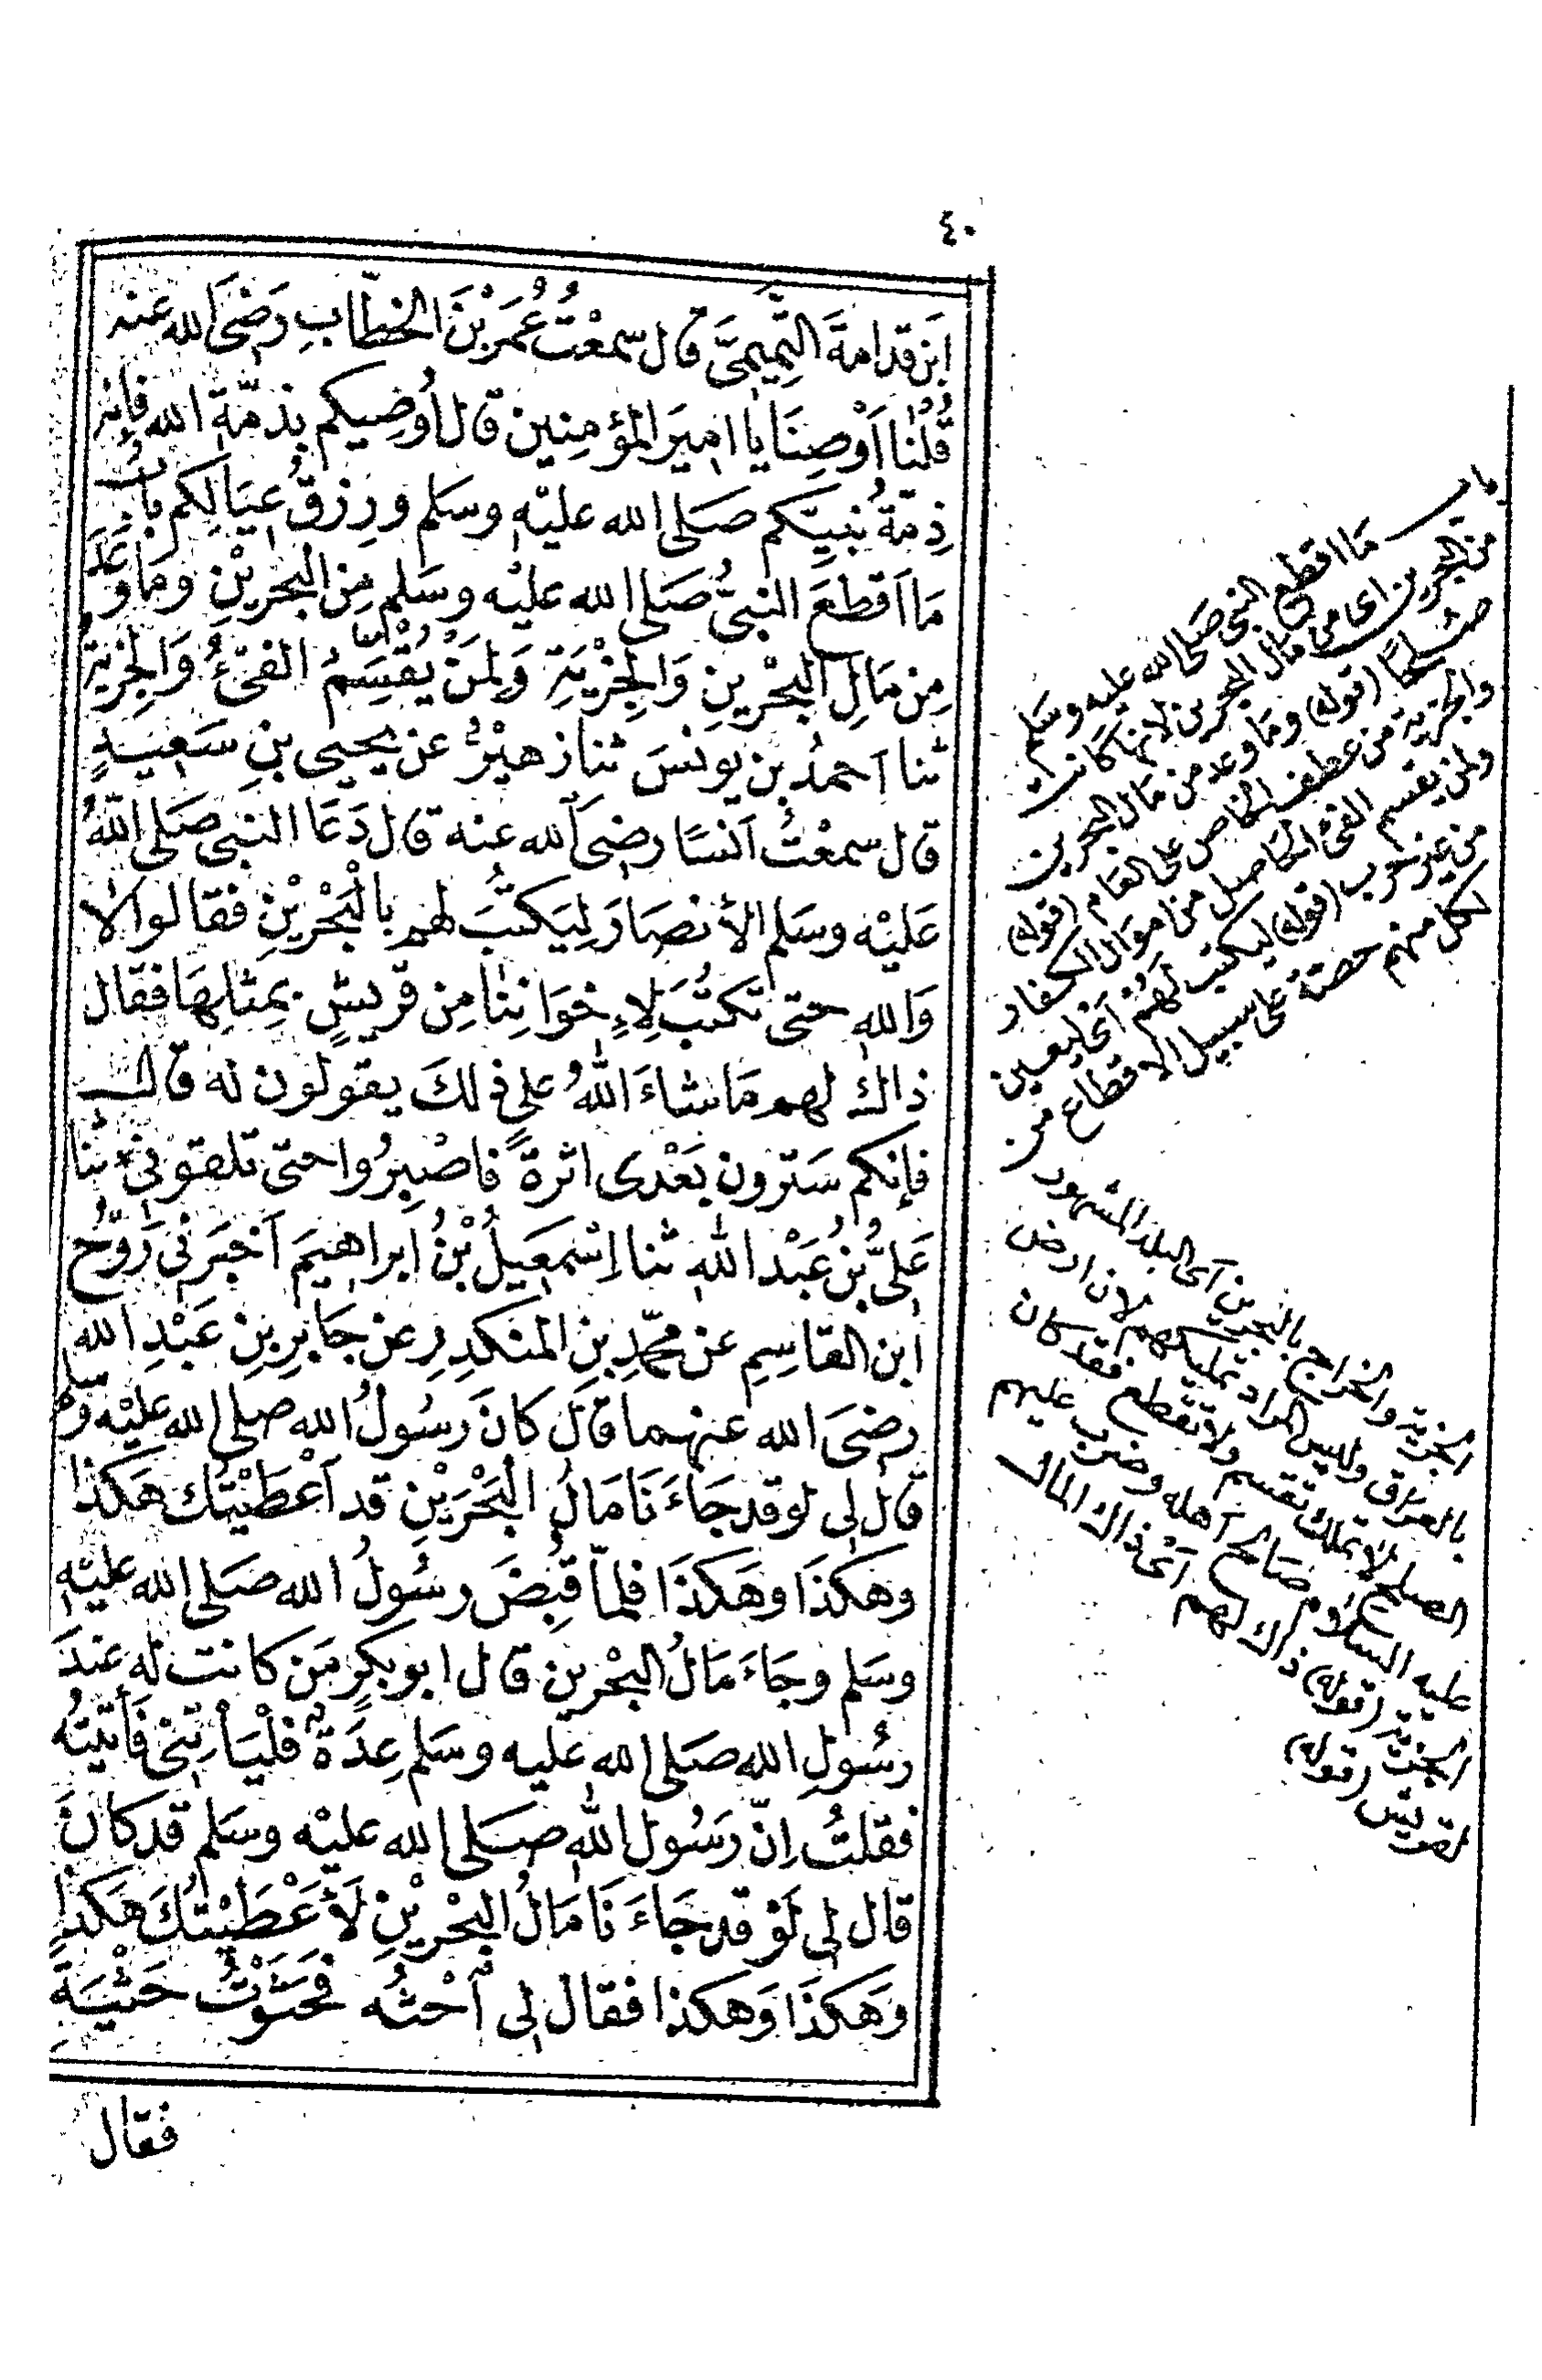 ٤٠
ابْنَ قدامةَ التَّمِيمِىَّ قال سمعْتُ عُمَرَ بْنَ الخطّابِ رَضىَ الله عنه
قُلْنا اَوْصِنَا يا امِيرَ المؤمِنِين قال اُوصِيكم بذمّةِ الله فإنه
ذِمّةُ نبيِّكم صَلى الله عليْه وسَلم ورِزقُ عِيَالِكم بابُ
مَا اَقطعَ النبىُّ صَلى الله عليْه وسَلم مِن البحْريْنِ ومَا وَعَدَ
مِن مَالِ البَحْرينِ وَالجِزْيَةِ وَلِمَنْ يُقْسَمُ الفىْءُ وَالجِزْيَةُ
ثنا اَحمدُ بن يونسَ ثنا زهيْرٌ عن يحيى بنِ سَعِيدٍ
قال سمعْتُ اَنسًا رضىَ الله عنه قال دَعَا النبى صَلى اللهُ
عَليْه وسَلم الأنصَارَ لِيَكتُبَ لهم بالْبَحْرَيْنِ فقالوا لا
وَاللهِ حتى تكتُبَ لِإخوَانِنا مِن قريشٍ بمثلِهَا فقال
ذاك لهم مَا شاءَ اللهُ على ذلكَ يقولون له قال
فإنكم سَترَون بَعْدى اثرةً فاصْبِرُوا حتى تلقونى ثنا
عَلىُّ بْنُ عَبْد اللهِ ثنا اِسْمعِيلُ بْنُ ابراهيمَ اَخبَرَنى رَوْحُ
ابن القاسِمِ عن محمّدِ بنِ المنكدِرِ عن جَابِرِ بنِ عَبْدِ الله
رضىَ الله عنهما قال كانَ رَسُولُ الله صلى الله عليْه وسلم
قال لى لو قد جَاءَنَا مَالُ البَحْرَيْنِ قد اَعْطَيْتُك هَكذا
وهكذَا وهَكذَا فلمّا قُبِضَ رسُولُ الله صَلى الله عليْه
وسَلم وجَاءَ مَالُ البحْرين قال ابو بكرٍ مَن كانت له عندَ
رسُولِ الله صَلى الله عليه وسَلم عِدَةٌ فلْيَأتِنى فَأتيْتُه
فقلتُ اِنّ رَسُولَ الله صَلى الله عليْه وسَلم قد كانَ
قال لى لَوْ قد جَاءَنَا مَالُ البحْريْنِ لَأعْطَيْتُكَ هَكذا
وَهَكذَا وَهَكذا فقال لى اُحْثُه فَحَثوْتُ حَثْيَةً
فقال
باب ما اقطع النبى صَلى الله عليه وسلم
من البحرين اى من مال البحرين لانها كانت
صلحًا (قوله) وما وعد من مال البحرين
والجزية من عطف الخاص على العام (قوله)
ولمن يقسم الفىء الحاصل من اموال الكفار
من غير حرب (قوله) ليكتب لهم اى ليعين
لكل منهم حصة على سبيل الاقطاع من
الجزية والخراج بالبحرين اى البلد المشهور
بالعراق وليس المراد تمليكهم لان ارض
الصلح لا تملك تقسم ولا تقطع فقد كان
عليه السلام صَالح اهله وضرب عليهم
الجزية (قوله) ذاك لهم اى ذاك المال
لقريش (قوله)